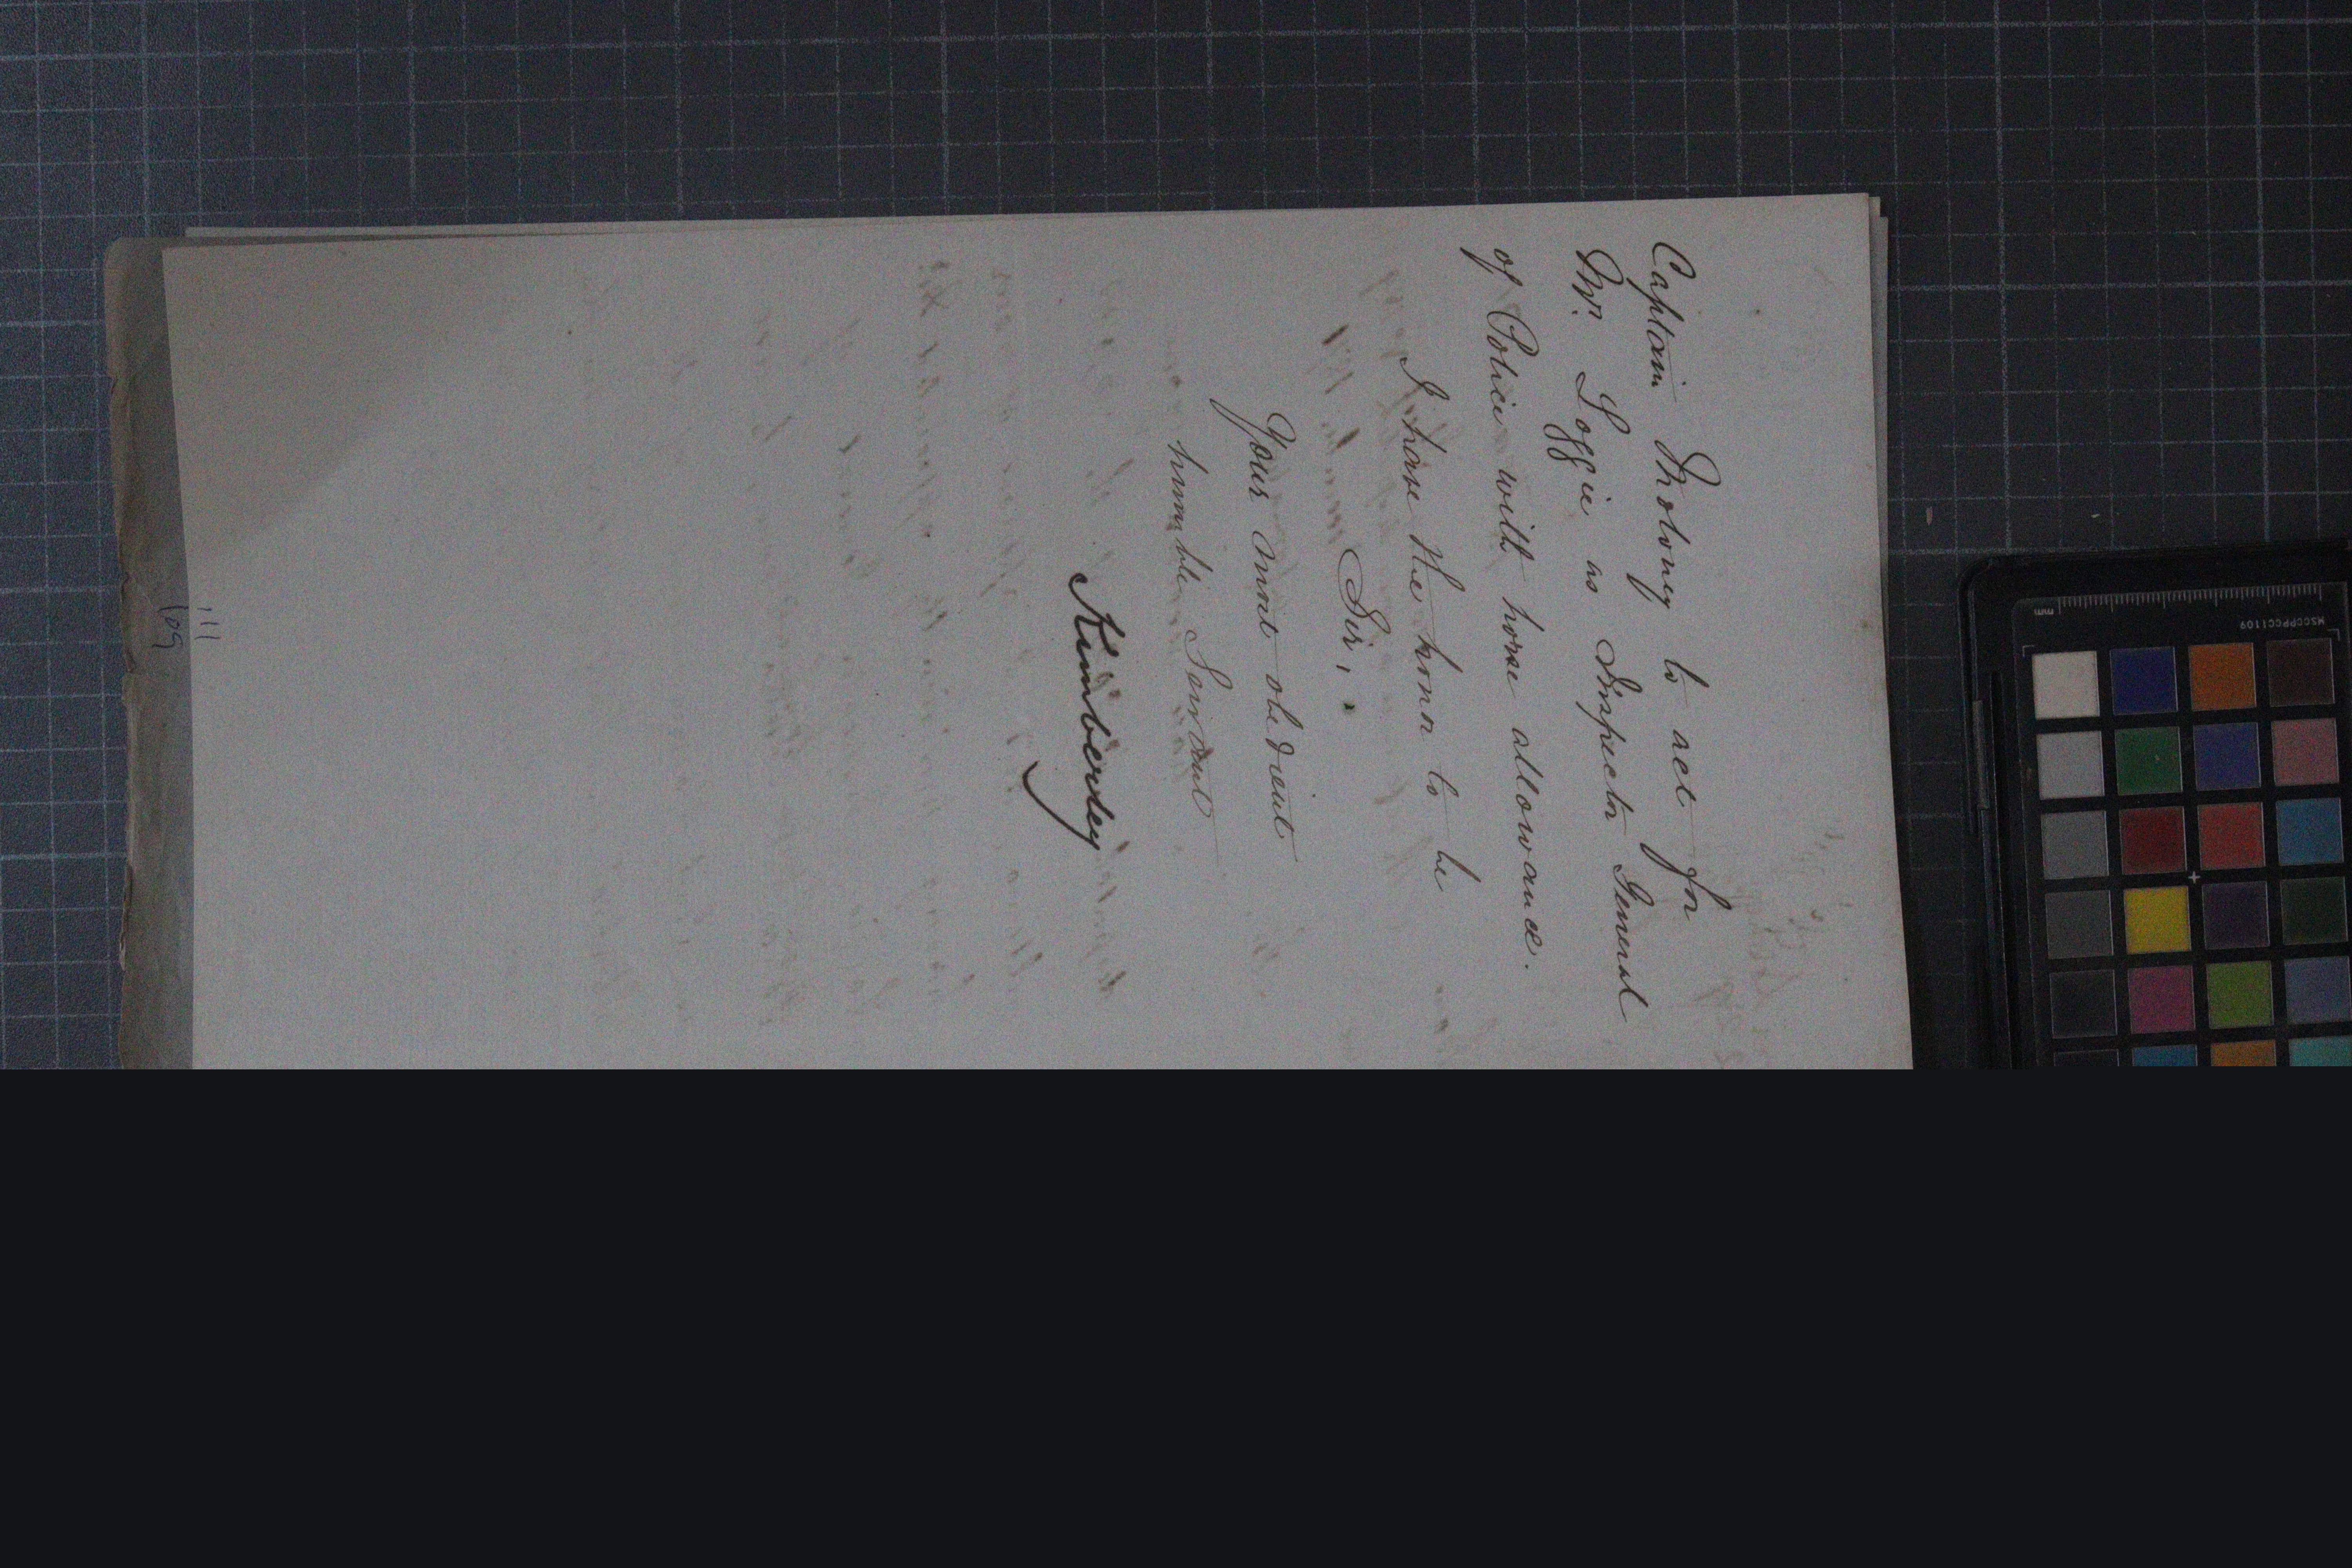 Captain Moloney to act for
Mr. Loggie as Inspector General
of Police with horse allowance.
I have the honor to be
Sir,
Your most obedient
humble Servant
Kimberley
111
109
MSCCPPCC1109
mm